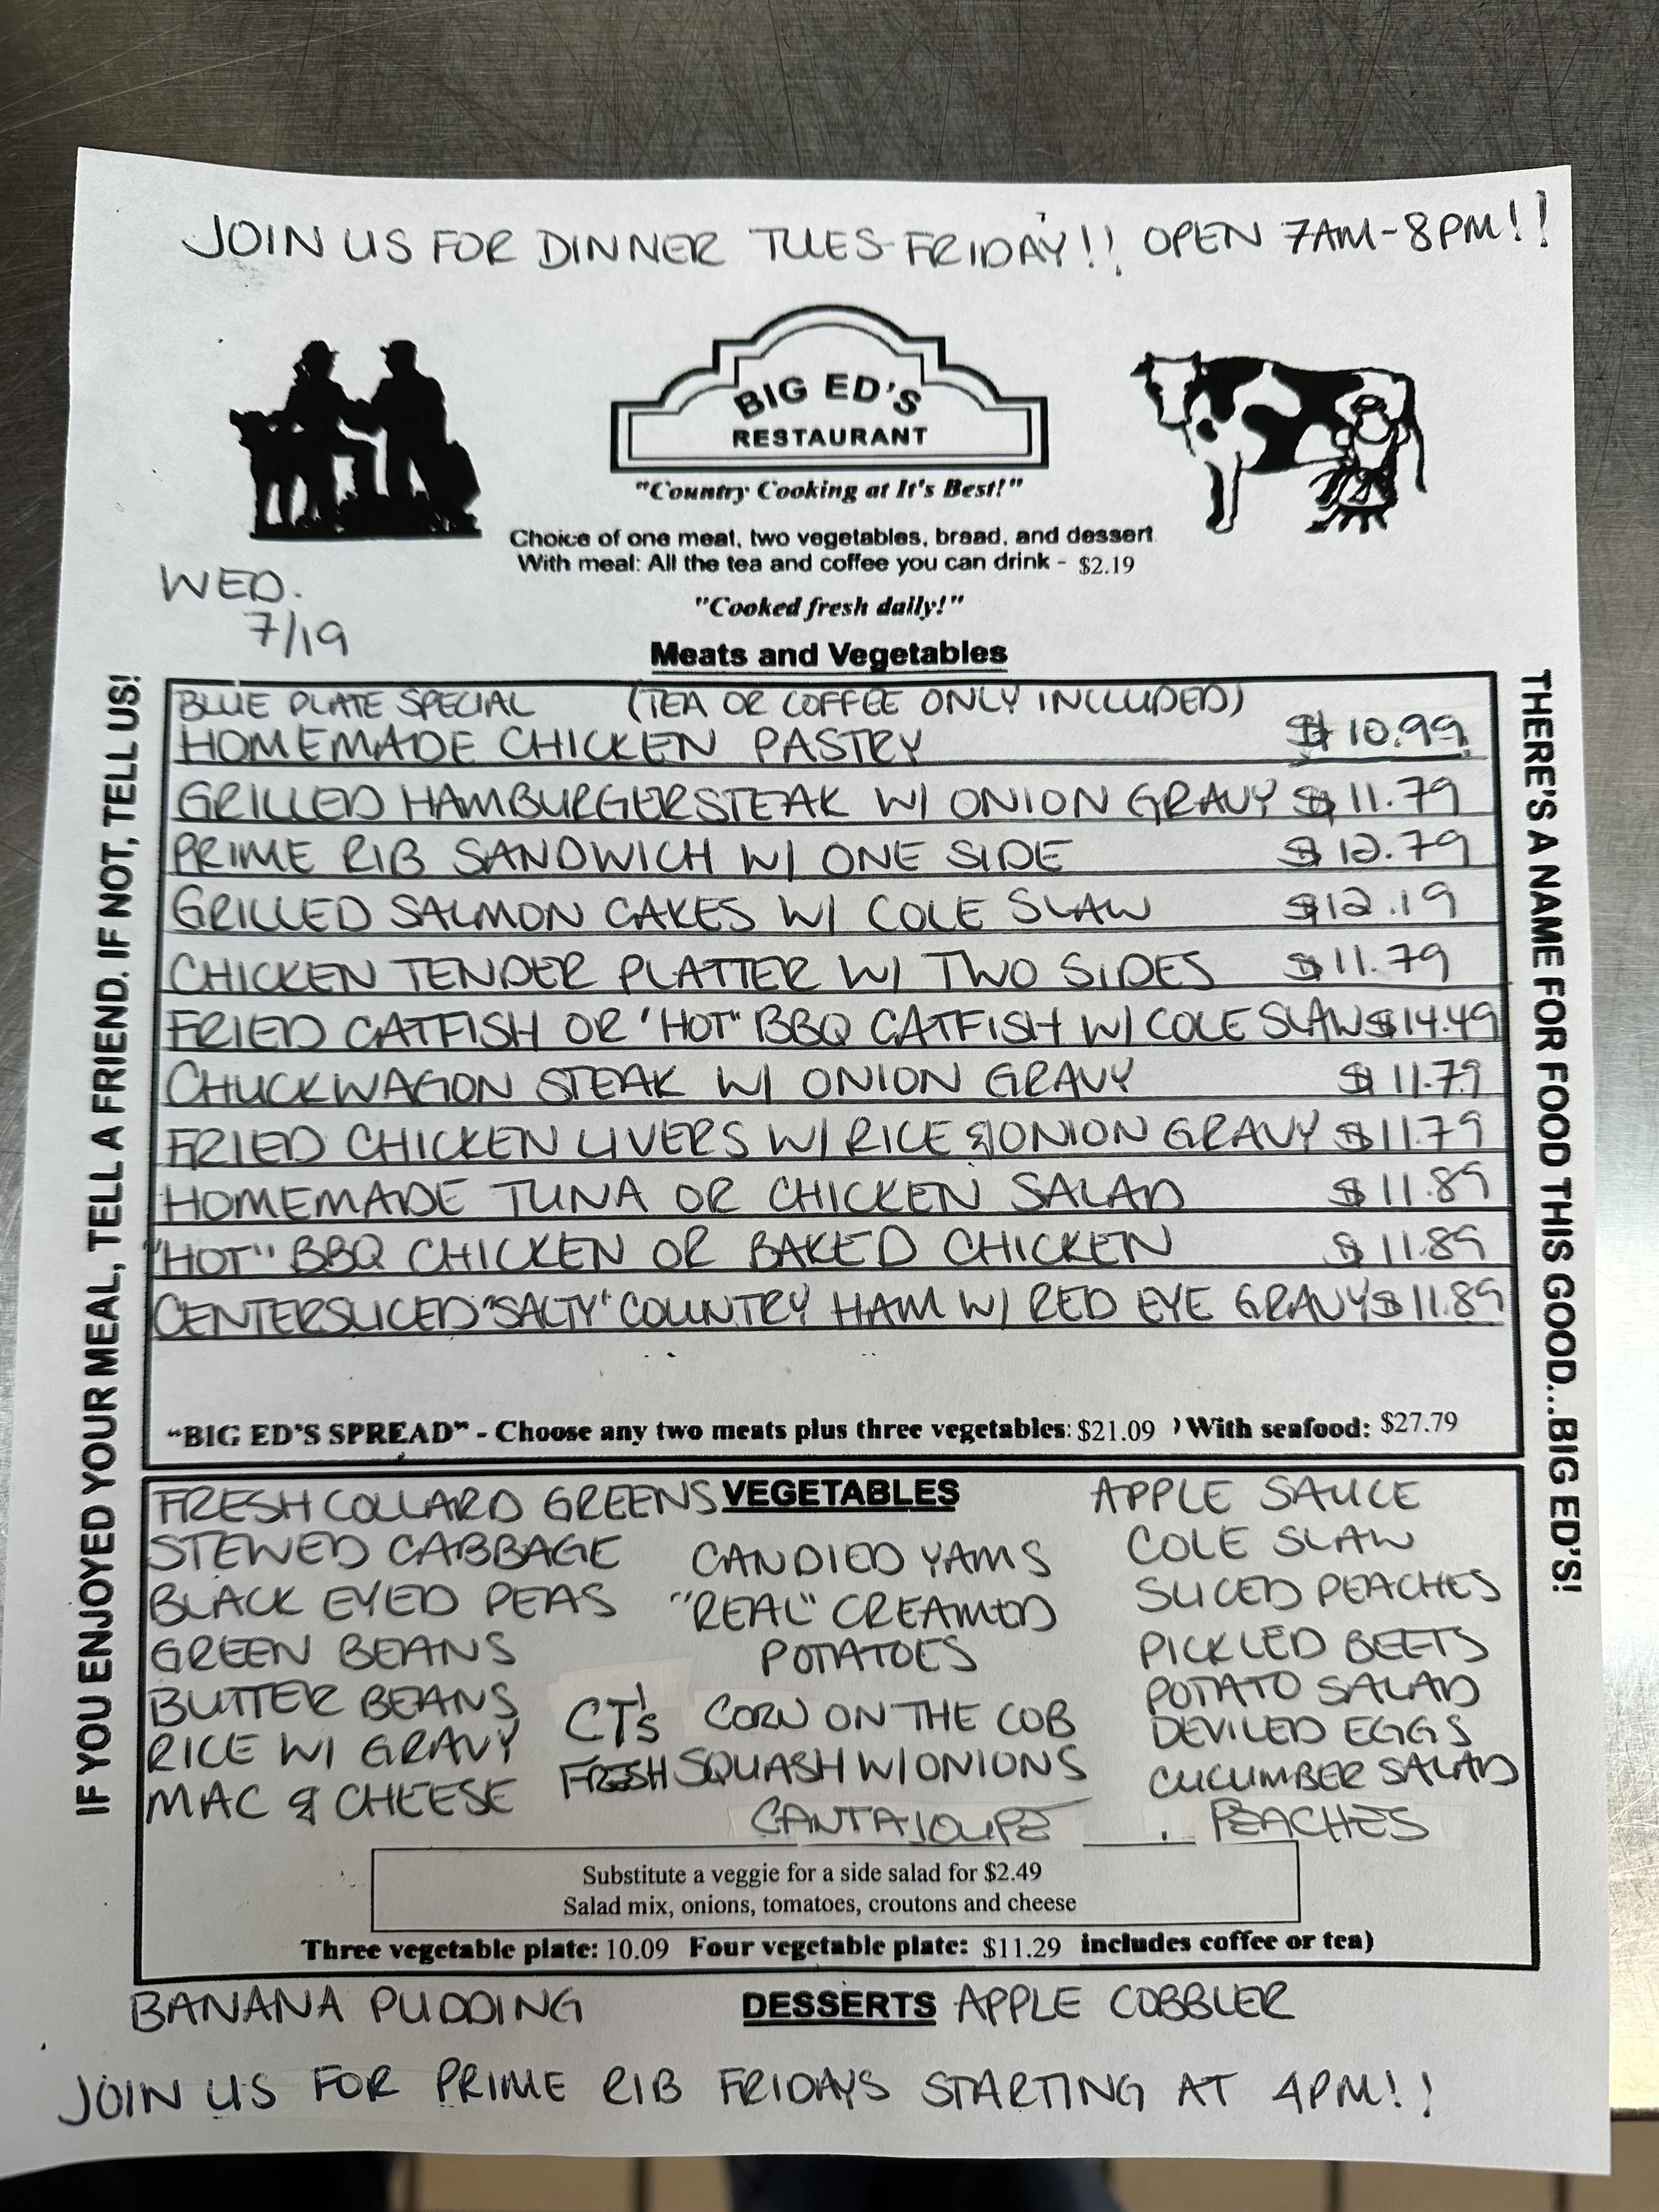 JOIN US FOR DINNER TUES-FRIDAY!! OPEN 7AM-8PM!!
BIG ED'S
RESTAURANT
"Country Cooking at It's Best!"
Choice of one meat, two vegetables, bread, and dessert
With meal: All the tea and coffee you can drink - $2.19
WED.
7/19
"Cooked fresh daily!"
Meats and Vegetables
IF YOU ENJOYED YOUR MEAL, TELL A FRIEND. IF NOT, TELL US!
THERE'S A NAME FOR FOOD THIS GOOD...BIG ED'S!
BLUE PLATE SPECIAL (TEA OR COFFEE ONLY INCLUDED)
HOMEMADE CHICKEN PASTRY $10.99
GRILLED HAMBURGERSTEAK W/ ONION GRAVY $11.79
PRIME RIB SANDWICH W/ ONE SIDE $12.79
GRILLED SALMON CAKES W/ COLE SLAW $12.19
CHICKEN TENDER PLATTER W/ TWO SIDES $11.79
FRIED CATFISH OR "HOT" BBQ CATFISH W/ COLE SLAW $14.49
CHUCKWAGON STEAK W/ ONION GRAVY $11.79
FRIED CHICKEN LIVERS W/ RICE & ONION GRAVY $11.79
HOMEMADE TUNA OR CHICKEN SALAD $11.89
"HOT" BBQ CHICKEN OR BAKED CHICKEN $11.89
CENTERSLICED "SALTY" COUNTRY HAM W/ RED EYE GRAVY $11.89
"BIG ED'S SPREAD" - Choose any two meats plus three vegetables: $21.09 ) With seafood: $27.79
VEGETABLES
FRESH COLLARD GREENS
STEWED CABBAGE
BLACK EYED PEAS
GREEN BEANS
BUTTER BEANS
RICE W/ GRAVY
MAC & CHEESE
CANDIED YAMS
"REAL" CREAMED
POTATOES
CT's CORN ON THE COB
FRESH SQUASH W/ ONIONS
CANTALOUPE
APPLE SAUCE
COLE SLAW
SLICED PEACHES
PICKLED BEETS
POTATO SALAD
DEVILED EGGS
CUCUMBER SALAD
PEACHES
Substitute a veggie for a side salad for $2.49
Salad mix, onions, tomatoes, croutons and cheese
Three vegetable plate: 10.09 Four vegetable plate: $11.29 includes coffee or tea)
BANANA PUDDING DESSERTS APPLE COBBLER
JOIN US FOR PRIME RIB FRIDAYS STARTING AT 4PM!!